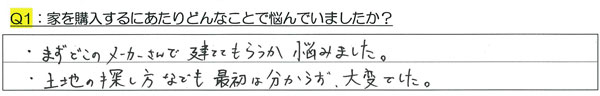 Q1：家を購入するにあたりどんなことで悩んでいましたか？
・まずどこのメーカーさんで建ててもらうか悩みました。
・土地の探し方なども最初は分からず、大変でした。